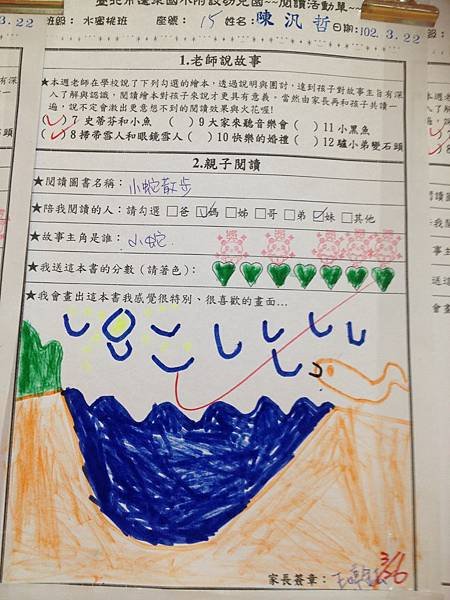 臺北市蓬萊國小附設幼兒園~~閱讀活動單~~
3.22 班級: 水蜜桃班 座號: 15 姓名: 陳汎哲 日期:102.3.22
1.老師說故事
★本週老師在學校說了下列勾選的繪本,透過說明與團討,達到孩子對故事主旨有深
入了解與認識,閱讀繪本對孩子來說才更具有意義。當然由家長再和孩子共讀一
遍,說不定會激出更意想不到的閱讀效果與火花喔!
(✓) 7 史蒂芬和小魚 ( ) 9 大家來聽音樂會 ( ) 11 小黑魚
(✓) 8 掃帚雪人和眼鏡雪人 ( ) 10 快樂的婚禮 ( ) 12 驢小弟變石頭
2.親子閱讀
★閱讀圖書名稱: 小蛇散步
★陪我閱讀的人:請勾選 □爸 ☑媽 □姊 □哥 □弟 ☑妹 □其他
★故事主角是誰: 小蛇
★我送這本書的分數(請著色):
★我會畫出這本書我感覺很特別、很喜歡的畫面…
家長簽章:
3/6